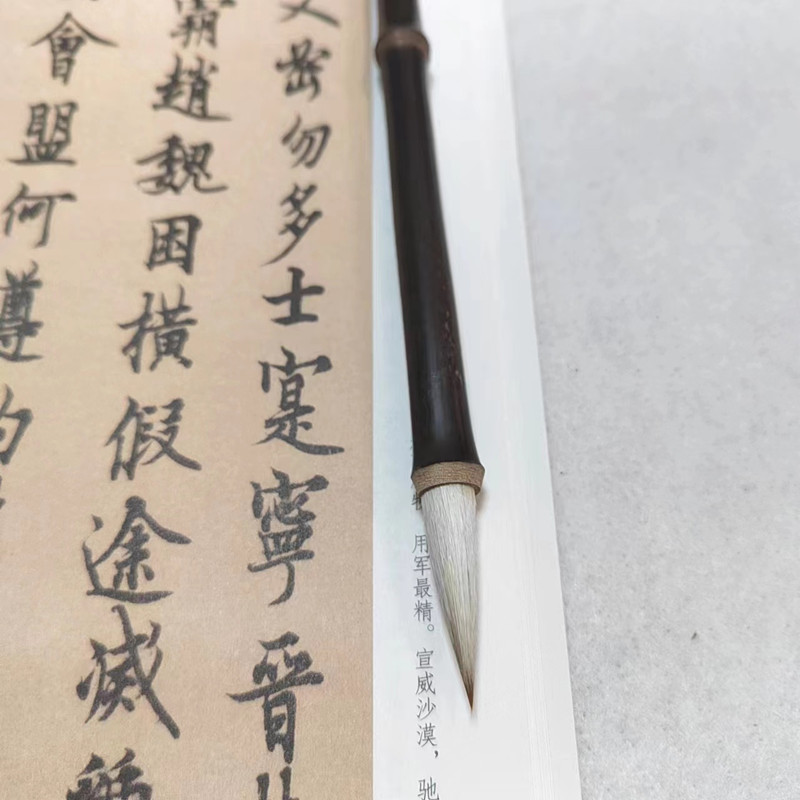 乂密勿多士寔寧晉
霸趙魏困横假途滅
會盟何遵
用军最精。宣威沙漠，驰